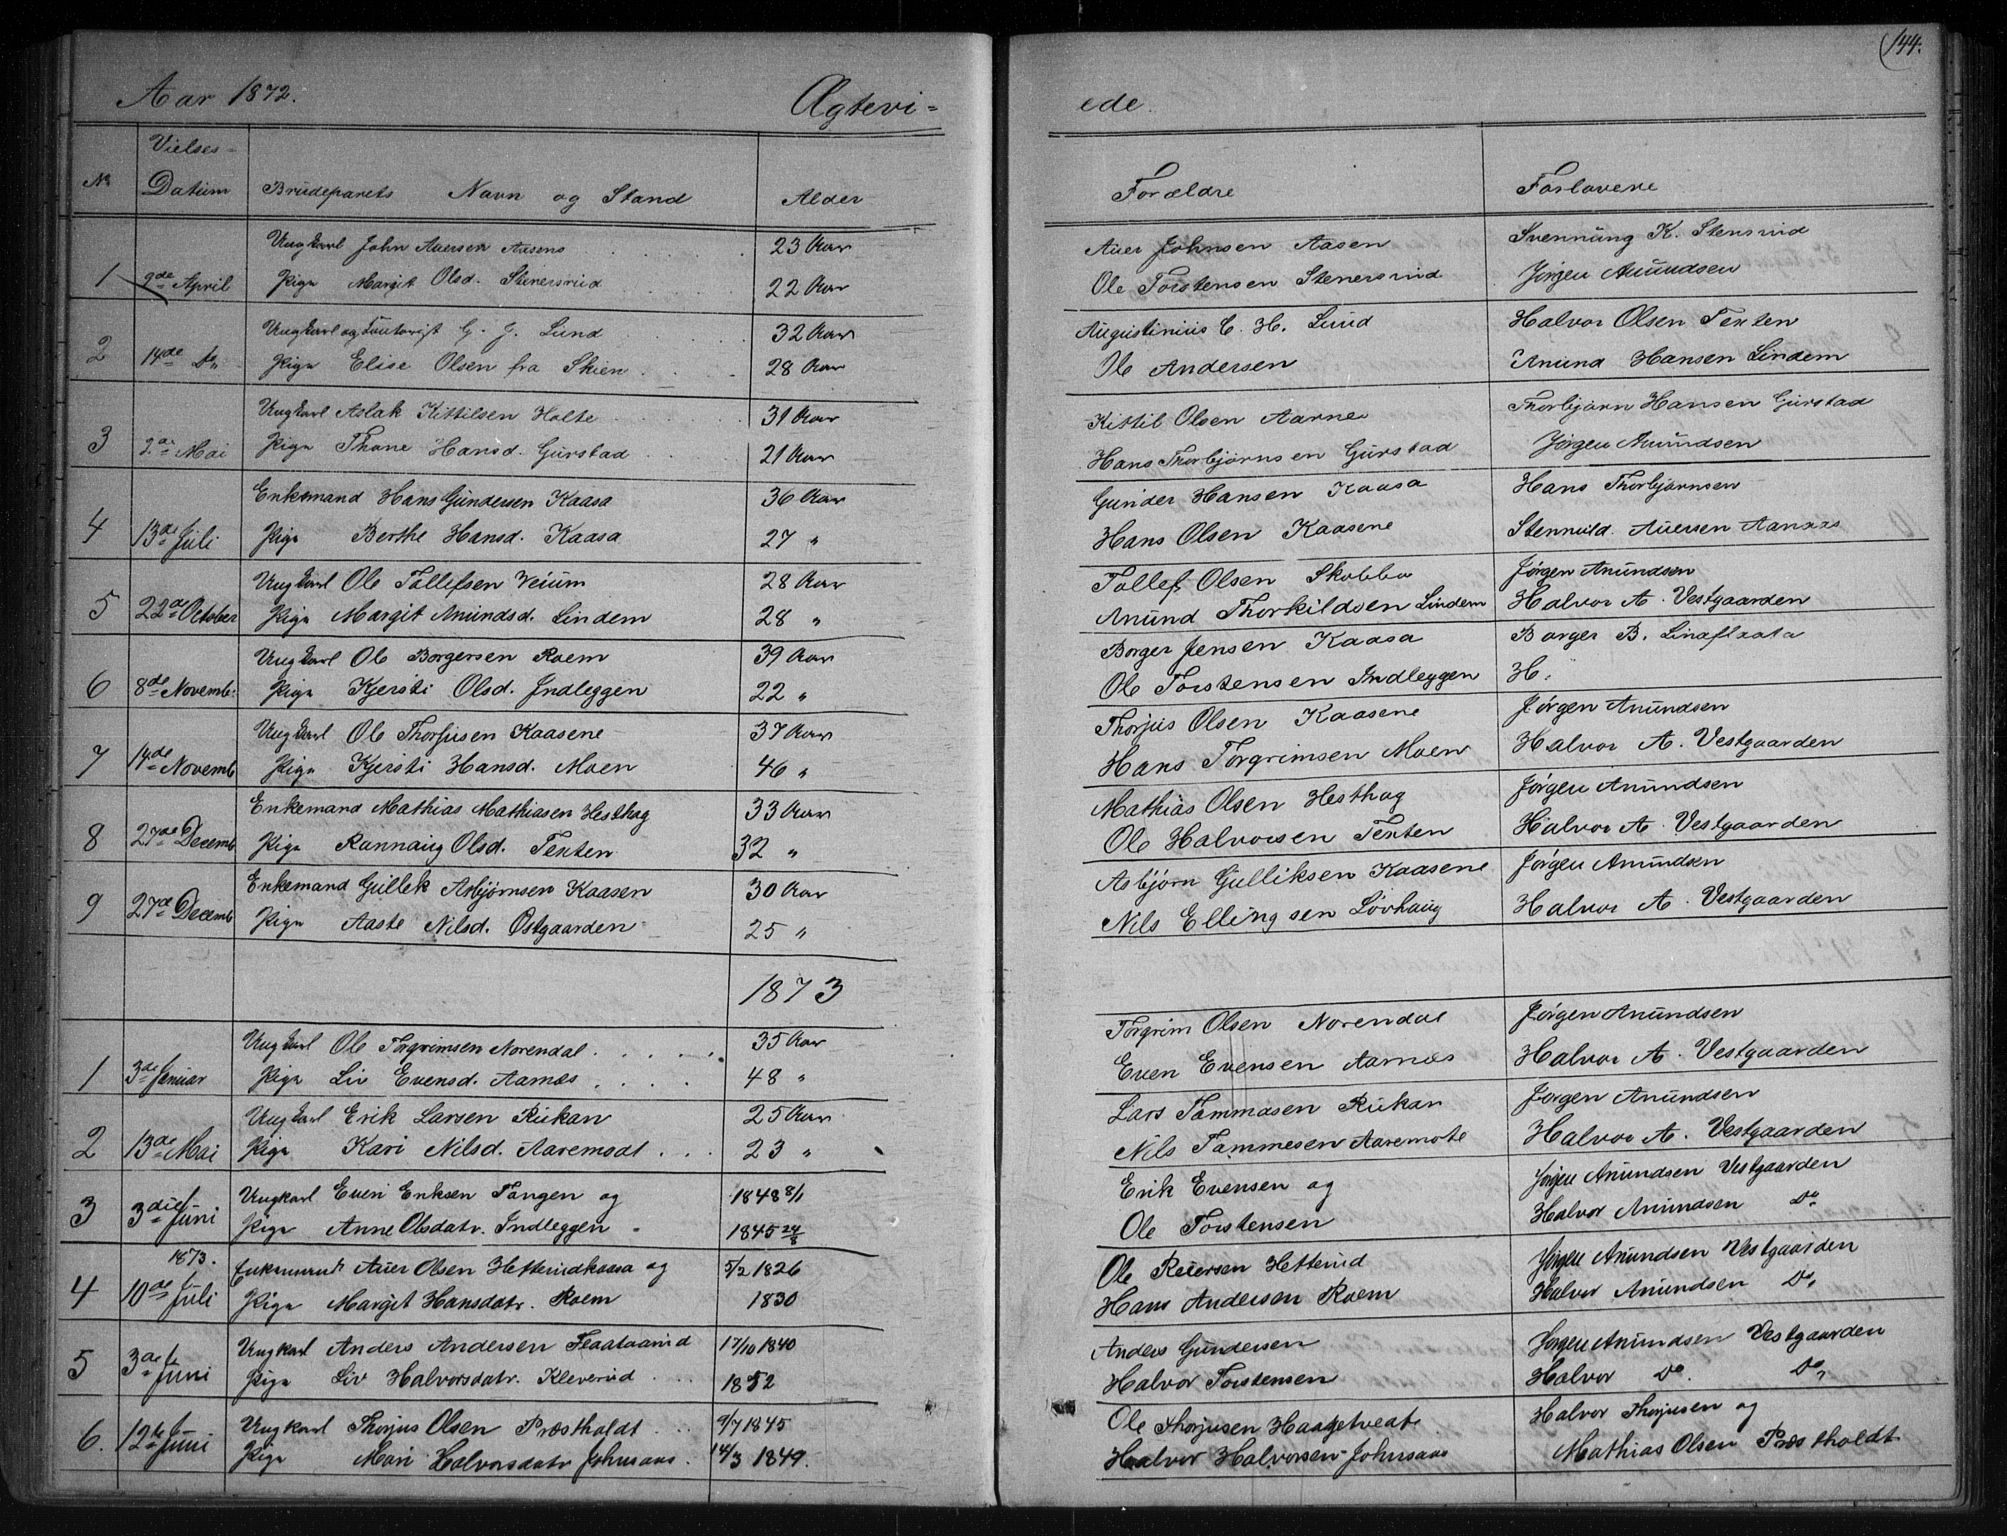 (144.
Aar 1872. Ægtevi=
ede.
No Vielses-Datum Brudeparets Navn og Stand Alder Forældre Forlovere
1 9de April Ungkarl John Auersen Aasens 23 Aar Auer Johnsen Aasen Svennung K. Stensrud
Pige Margit Olsd. Stenersrud 22 Aar Ole Torstensen Stenersrud Jørgen Anundsen
2 14de Do Ungkarl og G. J. Lund 32 Aar Augustinius C. H. Lund Halvor Olsen Texten
Pige Elise Olsen fra Skien 28 Aar Ole Andersen Anund Hansen Lindem
3 2de Mai Ungkarl Aslak Kittilsen Holte 31 Aar Kittil Olsen Aarnes Thorbjørn Hansen Gurstad
Pige Thone Hansd. Gurstad 21 Aar Hans Thorbjørnsen Gurstad Jørgen Anundsen
4 13de Juli Enkemand Hans Gundersen Kaasa 36 Aar Gunder Hansen Kaasa Hans Thorbjørnsen
Pige Berthe Hansd. Kaasa 27 " Hans Olsen Kaasene Stennuld Auersen Aanæs
5 22de October Ungkarl Ole Tollefsen Veium 28 Aar Tollef Olsen Skobba Jørgen Anundsen
Pige Margit Anundsd. Lindem 28 " Anund Thorkildsen Lindem Halvor A. Vestgaarden
6 8de Novemb: Ungkarl Ole Borgersen Roem 39 Aar Borger Jensen Kaasa Borger B. Linaflaata
Pige Kjersti Olsd. Indleggen 22 " Ole Torstensen Indleggen H.
7 14de Novemb Ungkarl Ole Thorjusen Kaasene 37 Aar Thorjus Olsen Kaasene Jørgen Anundsen
Pige Kjersti Hansd. Moen 46 " Hans Torgrimsen Moen Halvor A. Vestgaarden
8 27de Decemb Enkemand Mathias Mathiasen Hesthag 33 Aar Mathias Olsen Hesthag Jørgen Anundsen
Pige Rannaug Olsd. Texten 32 " Ole Halvorsen Texten Halvor A. Vestgaarden
9 27de Decemb Enkemand Gullek Asbjørnsen Kaasen 30 Aar Asbjørn Gulliksen Kaasene Jørgen Anundsen
Pige Aaste Nilsd. Østgaarden 25 " Nils Ellingsen Løvhaug Halvor A. Vestgaarden
1873
1 3de Januar Ungkarl Ole Torgrimsen Norendal 35 Aar Torgrim Olsen Norendal Jørgen Anundsen
Pige Liv Evensd. Aarnæs 48 " Even Evensen Aarnæs Halvor A. Vestgaarden
2 13de Mai Ungkarl Erik Larsen Rukan 25 Aar Lars Tammasen Rukan Jørgen Anundsen
Pige Kari Nilsd. Aaremodt 23 " Nils Tammesen Aaremote Halvor A. Vestgaarden
3 3die Juni Ungkarl Even Eriksen Tangen og 1848 8/1 Erik Evensen og Jørgen Anundsen Vestgaarden
Pige Anne Olsdatr. Indleggen 1845 24/8 Ole Torstensen Halvor Anundsen Do
1873.
4 10de Juli Enkemand Auer Olsen Hetterudkaasa og 5/2 1826 Ole Reiersen Hetterud Jørgen Anundsen Vestgaarden
Pige Margit Hansdatr. Roem 1830 Hans Andersen Roem Halvor Anundsen Do
5 3de Juni Ungkarl Anders Andersen Flaataarud 17/10 1840 Anders Gundersen Jørgen Anundsen Vestgaarden
Pige Liv Halvorsdatr. Kleverud 1852 Halvor Torstensen Halvor Do. Do
6. 12te Juni Ungkarl Thorjus Olsen Præstholdt 9/7 1845 Ole Thorjusen Haatvedt Halvor Thorjusen og
Pige Mari Halvorsdatr Johnsaas. 14/3 1849. Halvor Halvorsen Johnsaas Mathias Olsen Præstholdt